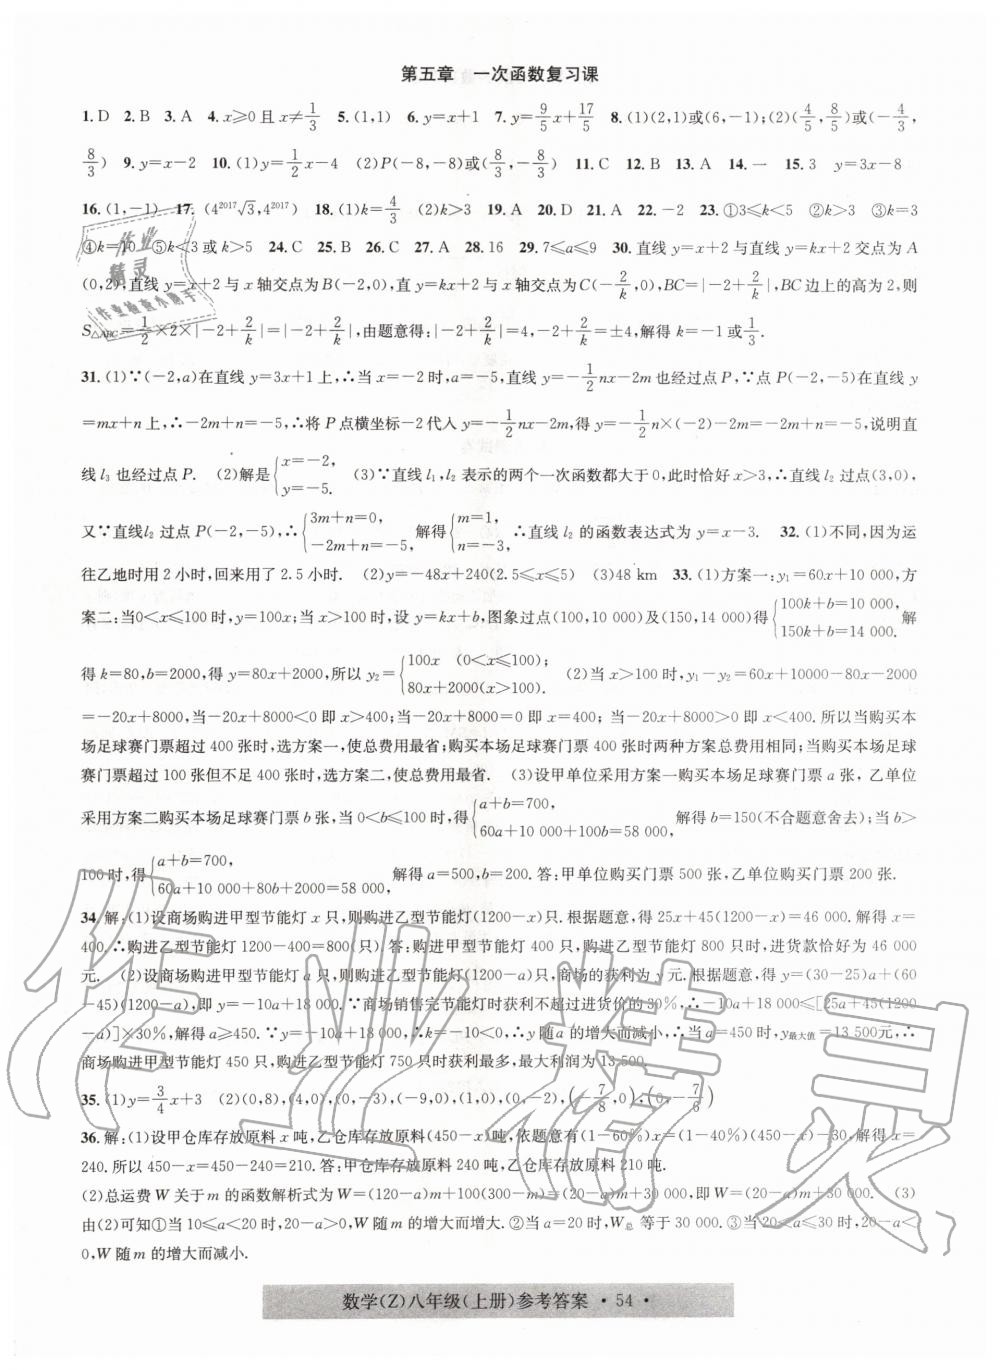 第五章　一次函数复习课
1. D　2. B　3. A　4. x≥0且x≠1/3　5. (1,1)　6. y=x+1　7. y=9/5x+17/5　8. (1)(2,1)或(6,-1);(2)(4/5,8/5)或(-4/3,
8/3)　9. y=x-2　10. (1)y=1/2x-4　(2)P(-8,-8)或(8/3,-8/3)　11. C　12. B　13. A　14. 一　15. 3　y=3x-8
16. (1,-1)　17. (4^2017√3,4^2017)　18. (1)k=4/3　(2)k>3　19. A　20. D　21. A　22. -2　23. ①3≤k<5　②k>3　③k=3
④k=10　⑤k<3或k>5　24. C　25. B　26. C　27. A　28. 16　29. 7≤a≤9　30. 直线y=x+2与直线y=kx+2交点为A
(0,2),直线y=x+2与x轴交点为B(-2,0),直y=kx+2与x轴交点为C(-2/k,0),BC=|-2+2/k|,BC边上的高为2,则
S△ABC=1/2×2×|-2+2/k|=|-2+2/k|,由题意得:|-2+2/k|=4,-2+2/k=±4,解得k=-1或1/3.
31. (1)∵(-2,a)在直线y=3x+1上,∴当x=-2时,a=-5,直线y=-1/2nx-2m也经过点P,∵点P(-2,-5)在直线y
=mx+n上,∴-2m+n=-5,∴将P点横坐标-2代入y=-1/2nx-2m,得y=-1/2n×(-2)-2m=-2m+n=-5,说明直
线l₃也经过点P.　(2)解是{x=-2, y=-5.　(3)∵直线l₁,l₂表示的两个一次函数都大于0,此时恰好x>3,∴直线l₂过点(3,0),
又∵直线l₂过点P(-2,-5),∴{3m+n=0, -2m+n=-5,解得{m=1, n=-3,∴直线l₂的函数表达式为y=x-3.　32. (1)不同,因为运
往乙地时用2小时,回来用了2.5小时.　(2)y=-48x+240(2.5≤x≤5)　(3)48 km　33. (1)方案一:y₁=60x+10 000,方
案二:当0<x≤100时,y=100x;当x>100时,设y=kx+b,图象过点(100,10 000)及(150,14 000)得{100k+b=10 000, 150k+b=14 000.解
得k=80,b=2000,得y=80x+2000,所以y₂={100x　(0<x≤100); 80x+2000(x>100).　(2)当x>100时,y₁-y₂=60x+10000-80x-2000
=-20x+8000,当-20x+8000<0即x>400;当-20x+8000=0即x=400;当-20x+8000>0即x<400.所以当购买本
场足球赛门票超过400张时,选方案一,使总费用最省;购买本场足球赛门票400张时两种方案总费用相同;当购买本场足球
赛门票超过100张但不足400张时,选方案二,使总费用最省.　(3)设甲单位采用方案一购买本场足球赛门票a张,乙单位
采用方案二购买本场足球赛门票b张,当0<b≤100时,得{a+b=700, 60a+10 000+100b=58 000,　解得b=150(不合题意舍去);当b>
100时,得{a+b=700, 60a+10 000+80b+2000=58 000,　解得a=500,b=200.答:甲单位购买门票500张,乙单位购买门票200张.
34. 解:(1)设商场购进甲型节能灯x只,则购进乙型节能灯(1200-x)只.根据题意,得25x+45(1200-x)=46 000.解得x=
400.∴购进乙型节能灯1200-400=800(只).答:购进甲型节能灯400只,购进乙型节能灯800只时,进货款恰好为46 000
元.　(2)设商场购进甲型节能灯a只,则购进乙型节能灯(1200-a)只,商场的获利为y元.根据题意,得y=(30-25)a+(60
-45)(1200-a),即y=-10a+18 000.∵商场销售完节能灯时获利不超过进货价的30%,∴-10a+18 000≤[25a+45(1200
-a)]×30%,解得a≥450.∵y=-10a+18 000,∴k=-10<0,∴y随a的增大而减小,∴当a=450时,y最大值=13 500元,∴
商场购进甲型节能灯450只,购进乙型节能灯750只时获利最多,最大利润为13 500.
35. (1)y=3/4x+3　(2)(0,8),(4,0),(0,-3),(-9,0),(1,0),(0,-2),(-7/8,0),(0,-7/6)
36. 解:(1)设甲仓库存放原料x吨,乙仓库存放原料(450-x)吨,依题意有(1-60%)x=(1-40%)(450-x)-30,解得x=
240.所以450-x=450-240=210.答:甲仓库存放原料240吨,乙仓库存放原料210吨.
(2)总运费W关于m的函数解析式为W=(120-a)m+100(300-m)=(20-a)m+30 000,即W=(20-a)m+30 000.　(3)
由(2)可知①当10≤a<20时,20-a>0,W随m的增大而增大.②当a=20时,W总等于30 000.③当20<a≤30时,20-a<
0,W随m的增大而减小.
数学(Z)八年级(上册)参考答案 · 54 ·
作业精灵
作业检查小助手
作业精灵